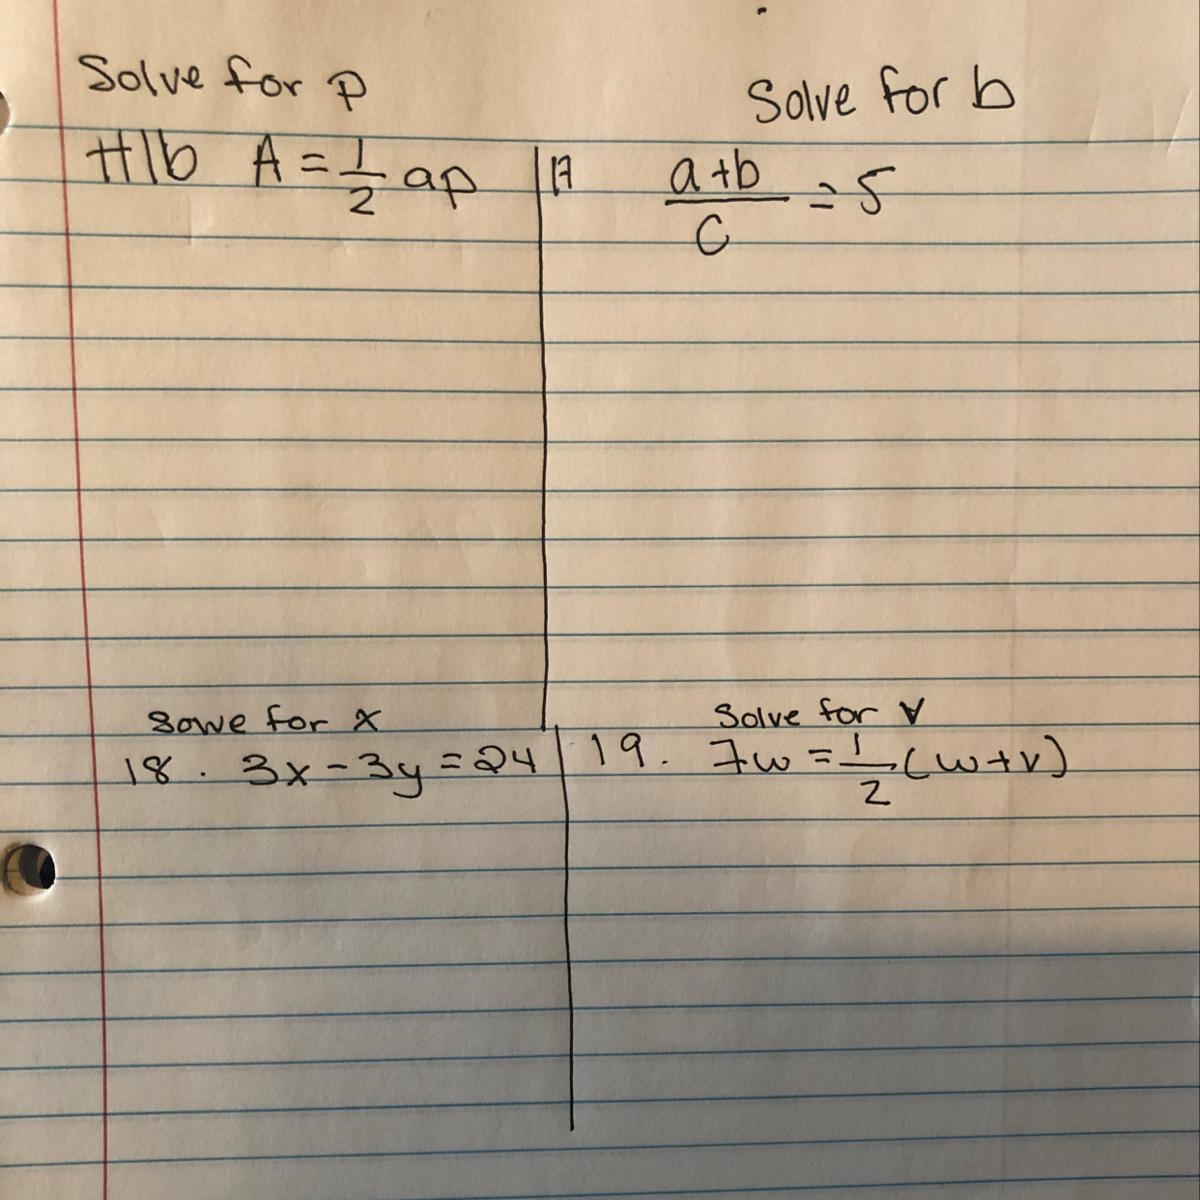 Solve for p
#16 A = 1/2 ap
Solve for b
17 a+b/c = 5
Solve for x
18. 3x - 3y = 24
Solve for v
19. 7w = 1/2 (w+v)